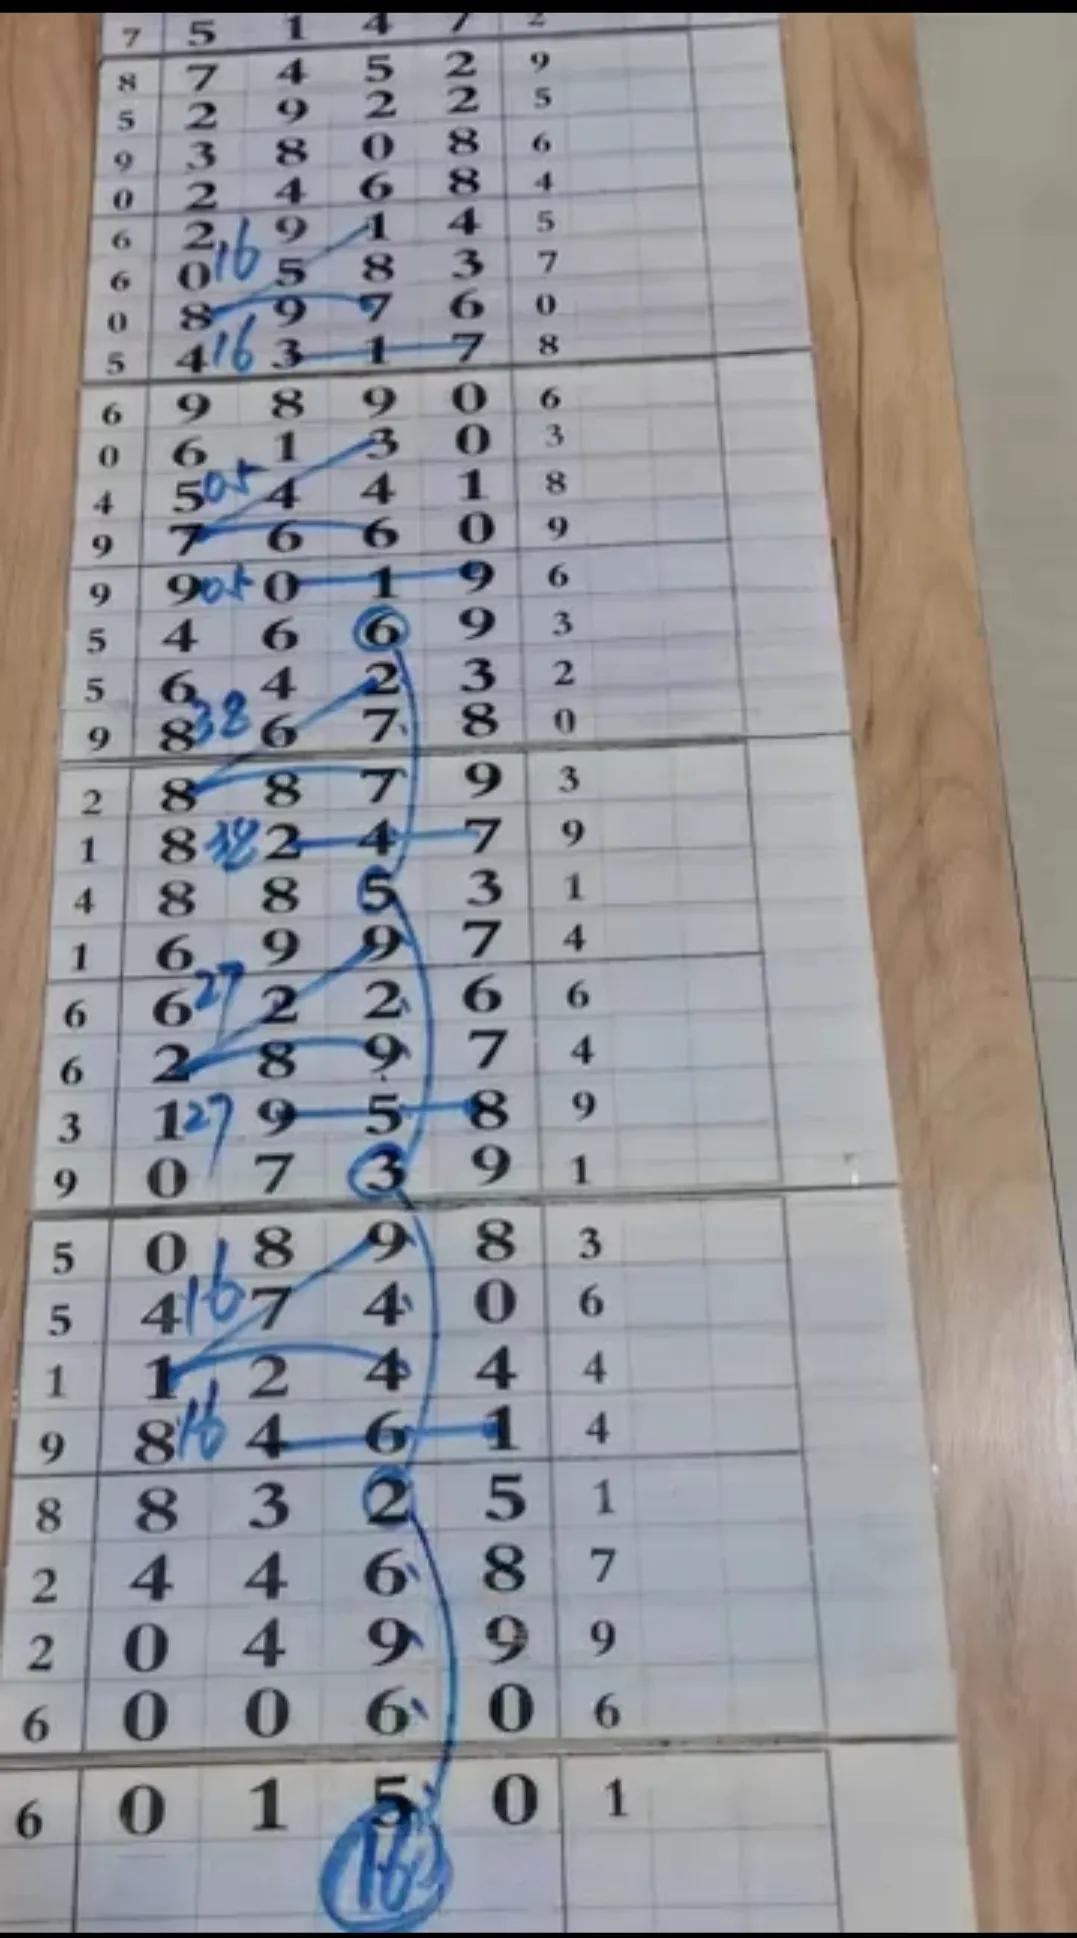 7 5 1 4 7 2
8 7 4 5 2 9
5 2 9 2 2 5
9 3 8 0 8 6
0 2 4 6 8 4
6 2 9 1 4 5
16
6 0 5 8 3 7
0 8 9 7 6 0
5 4 16 3 1 7 8
6 9 8 9 0 6
0 6 1 3 0 3
4 5 05 4 4 1 8
9 7 6 6 0 9
9 9 05 0 1 9 6
5 4 6 6 9 3
5 6 4 2 3 2
9 8 38 6 7 8 0
2 8 8 7 9 3
1 8 38 2 4 7 9
4 8 8 5 3 1
1 6 9 9 7 4
6 6 27 2 2 6 6
6 2 8 9 7 4
3 1 27 9 5 8 9
9 0 7 3 9 1
5 0 8 9 8 3
5 4 16 7 4 0 6
1 1 2 4 4 4
9 8 16 4 6 1 4
8 8 3 2 5 1
2 4 4 6 8 7
2 0 4 9 9 9
6 0 0 6 0 6
6 0 1 5 0 1
16